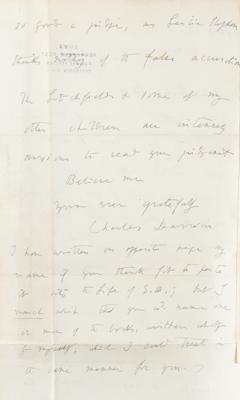 so good a judge, as Leslie Stephen
thinks of the false accusation
The Litchfields & some of my
other children are intensely
anxious to read your judgment
Believe me
Your ever gratefully
Charles Darwin
I have written on opposite page my
name if you think fit to paste
it into the Life of E.D.; but I
much wish that you would name one
or more of the books, written wholly
by myself, which I could treat in
the same manner for you.